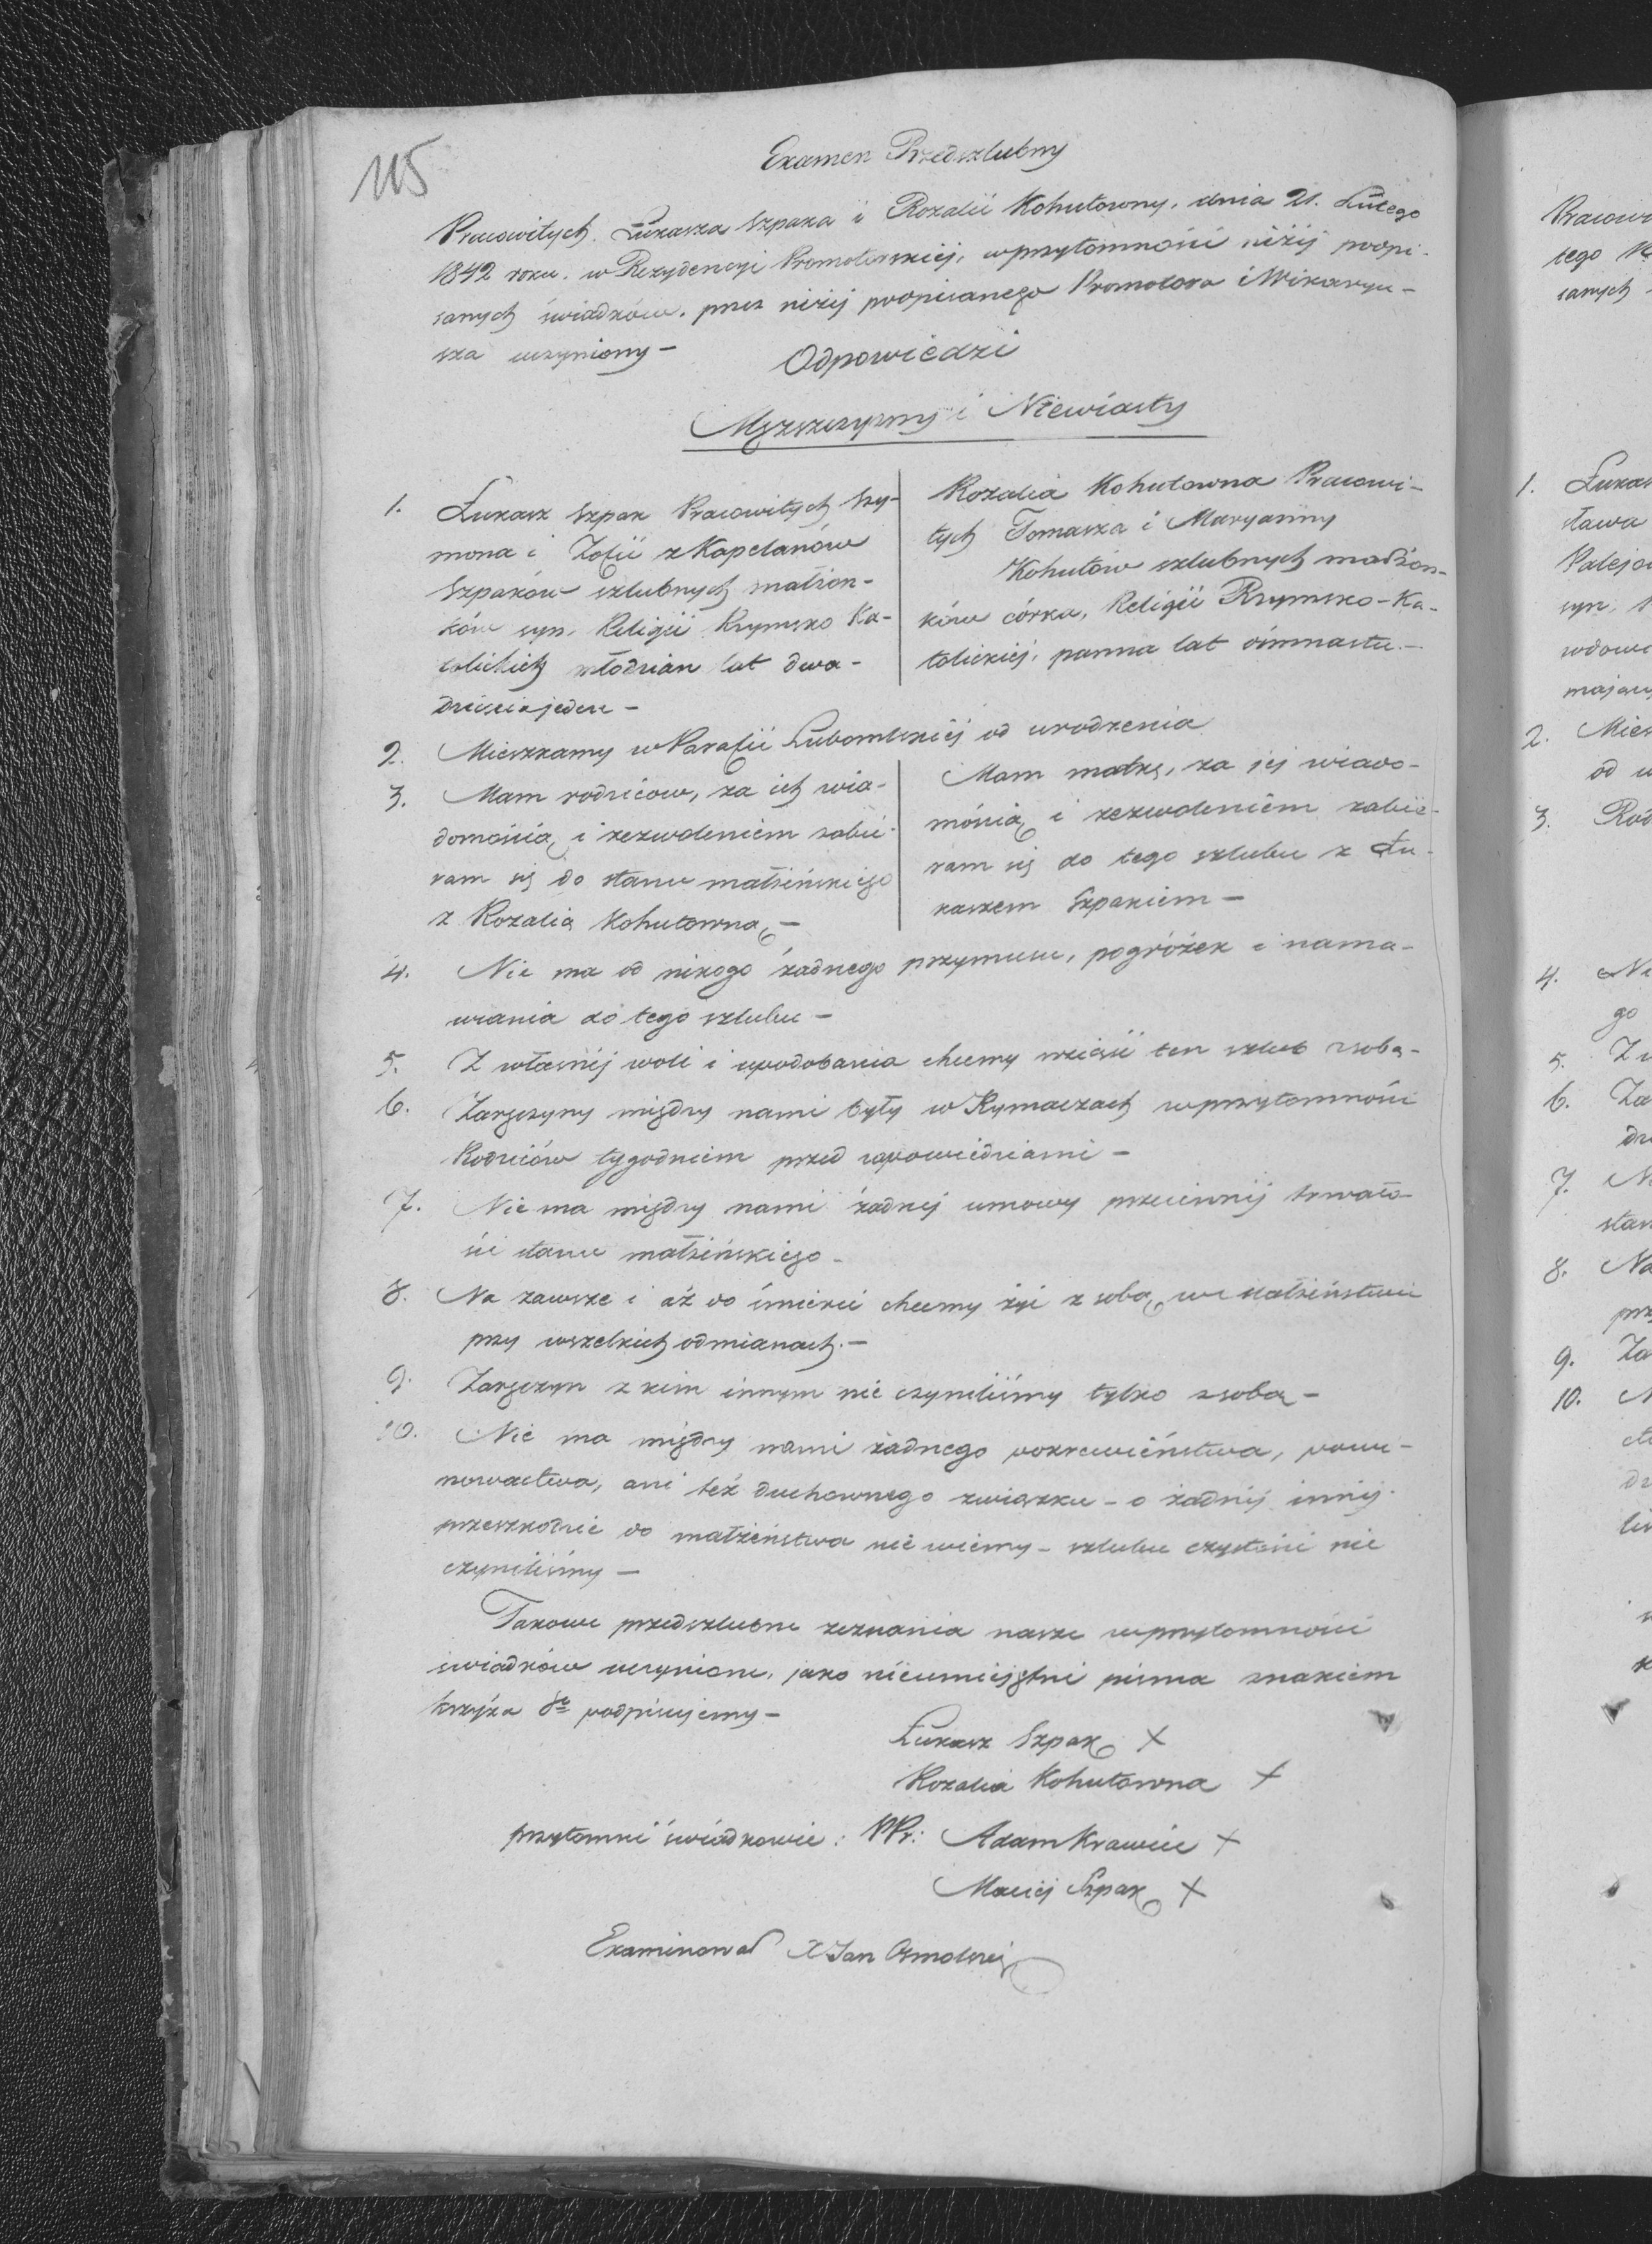 115
Examen Przedszlubny
Pracowitych Łukasza Szpaka i Rozalii Kohutowny, dnia 21. Lutego
1842 roku. w Rezydencyi Promotorskiéj, w przytomności niżéj podpi-
sanych świadków, przez niżéj podpisanego Promotora i Wikaryu-
sza uczyniony -
Odpowiedzi
Mężczyzny i Niewiasty
1. Łukasz Szpak Pracowitych Szy-
mona i Zofii z Kapelanów
Szpaków szlubnych małżon-
ków syn, Religii Rzymsko Ka-
tolickiéj młodzian lat dwa-
dzieścia jeden -
Rozalia Kohutowna Pracowi-
tych Tomasza i Maryanny
Kohutów szlubnych małżon-
ków córka, Religii Rzymsko-Ka-
tolickiéj, panna lat ośmnastu. -
2. Mieszkamy w Parafii Lubomlskiéj od urodzenia
3. Mam rodziców, za ich wia-
domością i zezwoleniem zabié-
ram się do stanu małżeńskiego
z Rozalią Kohutowną -
Mam matkę, za jéj wiado-
mością i zezwoleniem zabié-
ram się do tego szlubu z Łu-
kaszem Szpakiem -
4. Nie ma od nikogo żadnego przymusu, pogróżek i nama-
wiania do tego szlubu -
5. Z własnéj woli i upodobania chcemy wziąść ten szlub z sobą -
6. Zaręczyny między nami były w Rymaczach w przytomności
Rodziców tygodniem przed zapowiedziami -
7. Nie ma między nami żadnéj umowy przeciwnéj trwało-
ści stanu małżeńskiego -
8. Na zawsze i aż do śmierci chcemy żyć z sobą w małżeństwie
przy wszelkich odmianach. -
9. Zaręczyn z kim innym nie czyniliśmy tylko z sobą -
10. Nie ma między nami żadnego pokrewieństwa, powi-
nowactwa, ani też duchownego związku - o żadnéj innéj
przeszkodzie do małżeństwa nie wiémy - szlubu czystości nie
czyniliśmy -
Takowe przedszlubne zeznania nasze w przytomności
świadków uczynione, jako nieumiejętni pisma znakiem
krzyża Sgo podpisujemy -
Łukasz Szpak X
Rozalia Kohutowna X
przytomni świadkowie: PPr: Adam Krawiec X
Maciéj Szpak X
Examinował X Jan Osmolski